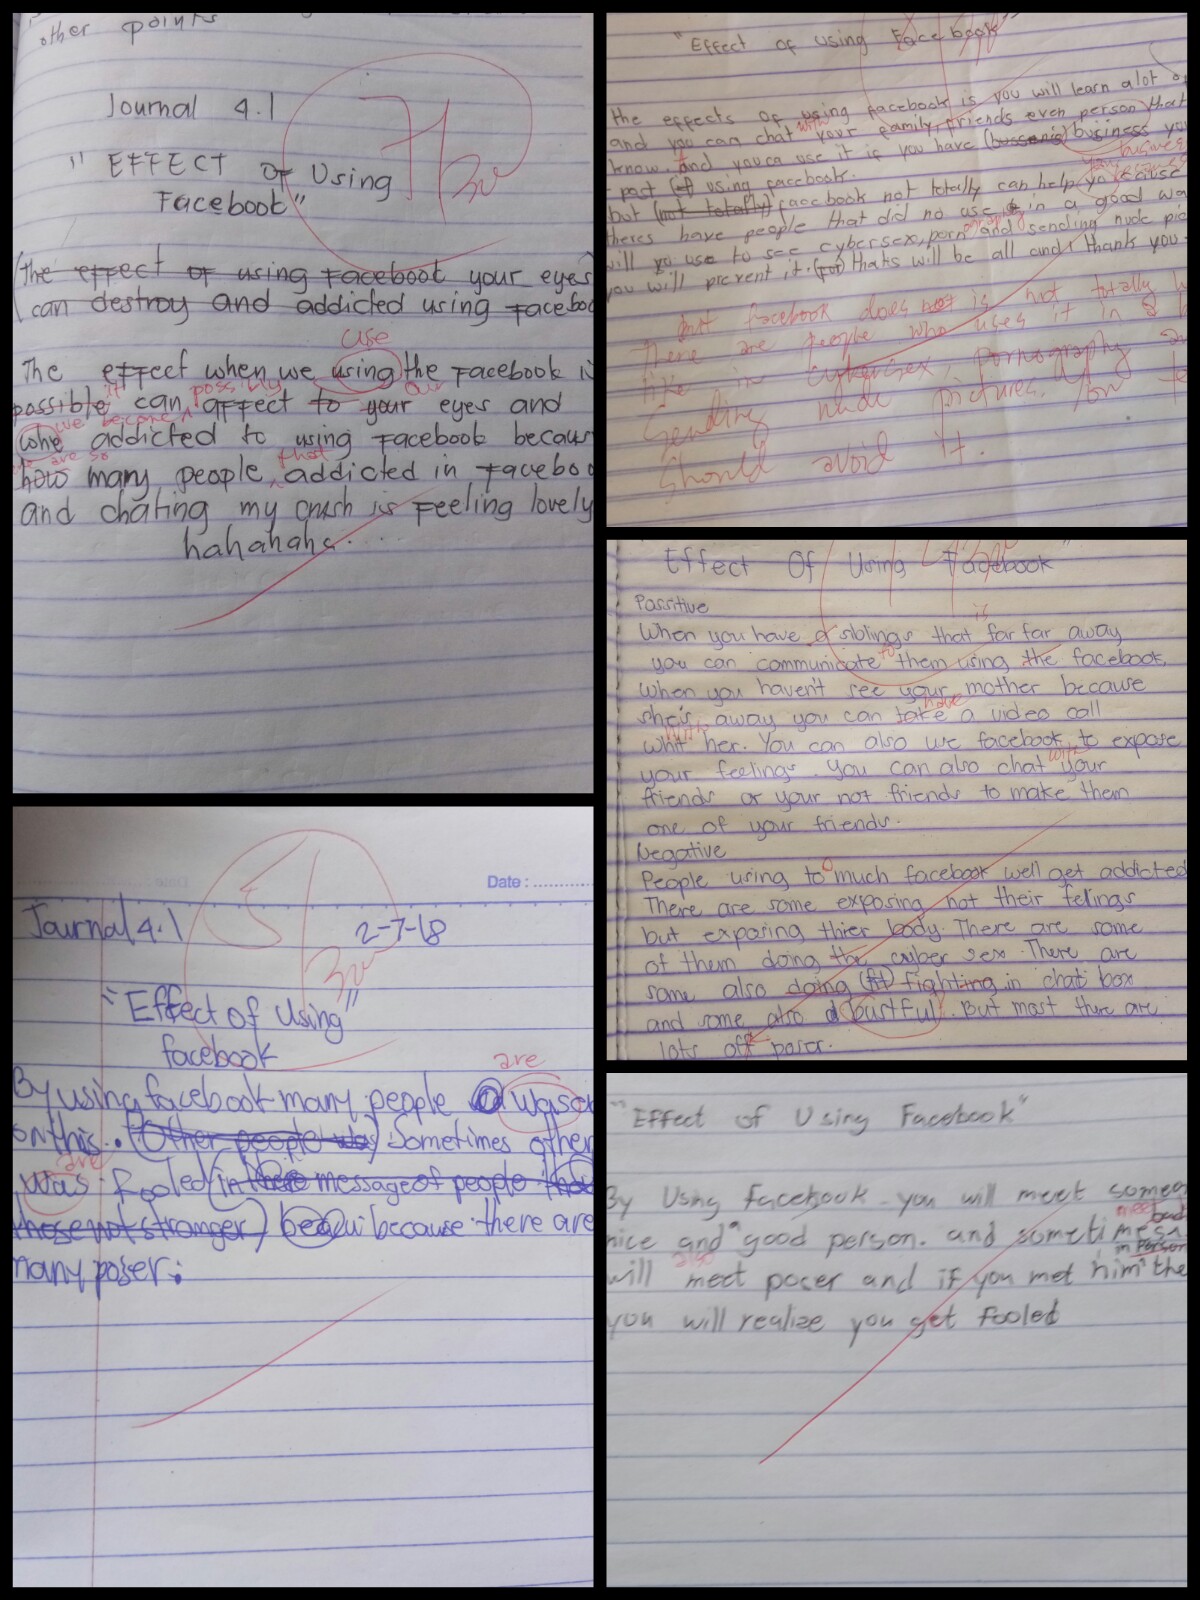 other points
Journal 4.1
" EFFECT of Using
Facebook"
(The effect of using Facebook your eyes
can destroy and addicted using
use
The effect when we using the Facebook
it possibly our
possible can affect to your eyes and
we become
who addicted to using Facebook
are so that
how many people, addicted in
and chating my crush is Feeling lovely
hahahaha...
"Effect of using Facebook"
the effects of using facebook is you will learn alot
with
and you can chat your family, friends even person that
know. and youca use it if you have business
part of using facebook.
business
but (not totally) facebook not totally can help
theres have people that did no use in a good
will yo use to see cybersex, porn and sending nude
you will prevent it. (for) thats will be all and thank you
but facebook does not is not totally
there are people who uses it in a
like in cybersex, pornography
Sending nude pictures. You
Should avoid it.
Effect Of Using Facebook"
Possitive
is
When you have a siblings that far far away
to
you can communicate them using the facebook.
When you haven't see your mother because
have
she's away you can take a video call
with
whit her. You can also use facebook to expose
with
your feelings. You can also chat your
friends or your not friends to make them
one of your friends.
Negative
o
People using to much facebook well get addicted
There are some exposing not their felings
but exposing thier body. There are some
of them doing the cyber sex. There are
some also doing fighting in chat box
and some also bustful. But most there are
lots off poser.
Date :
Journal 4.1 2-7-18
"Effect of Using"
facebook
are
By using facebook many people
on this.. (Other people was) Sometimes other
are
was fooled (in there message of people
those not stranger) because there are
many poser.
"Effect of Using Facebook"
By Using facebook you will meet
meet bad
nice and good person. and sometimes
also in person
will meet poser and if you met him
you will realize you get fooled